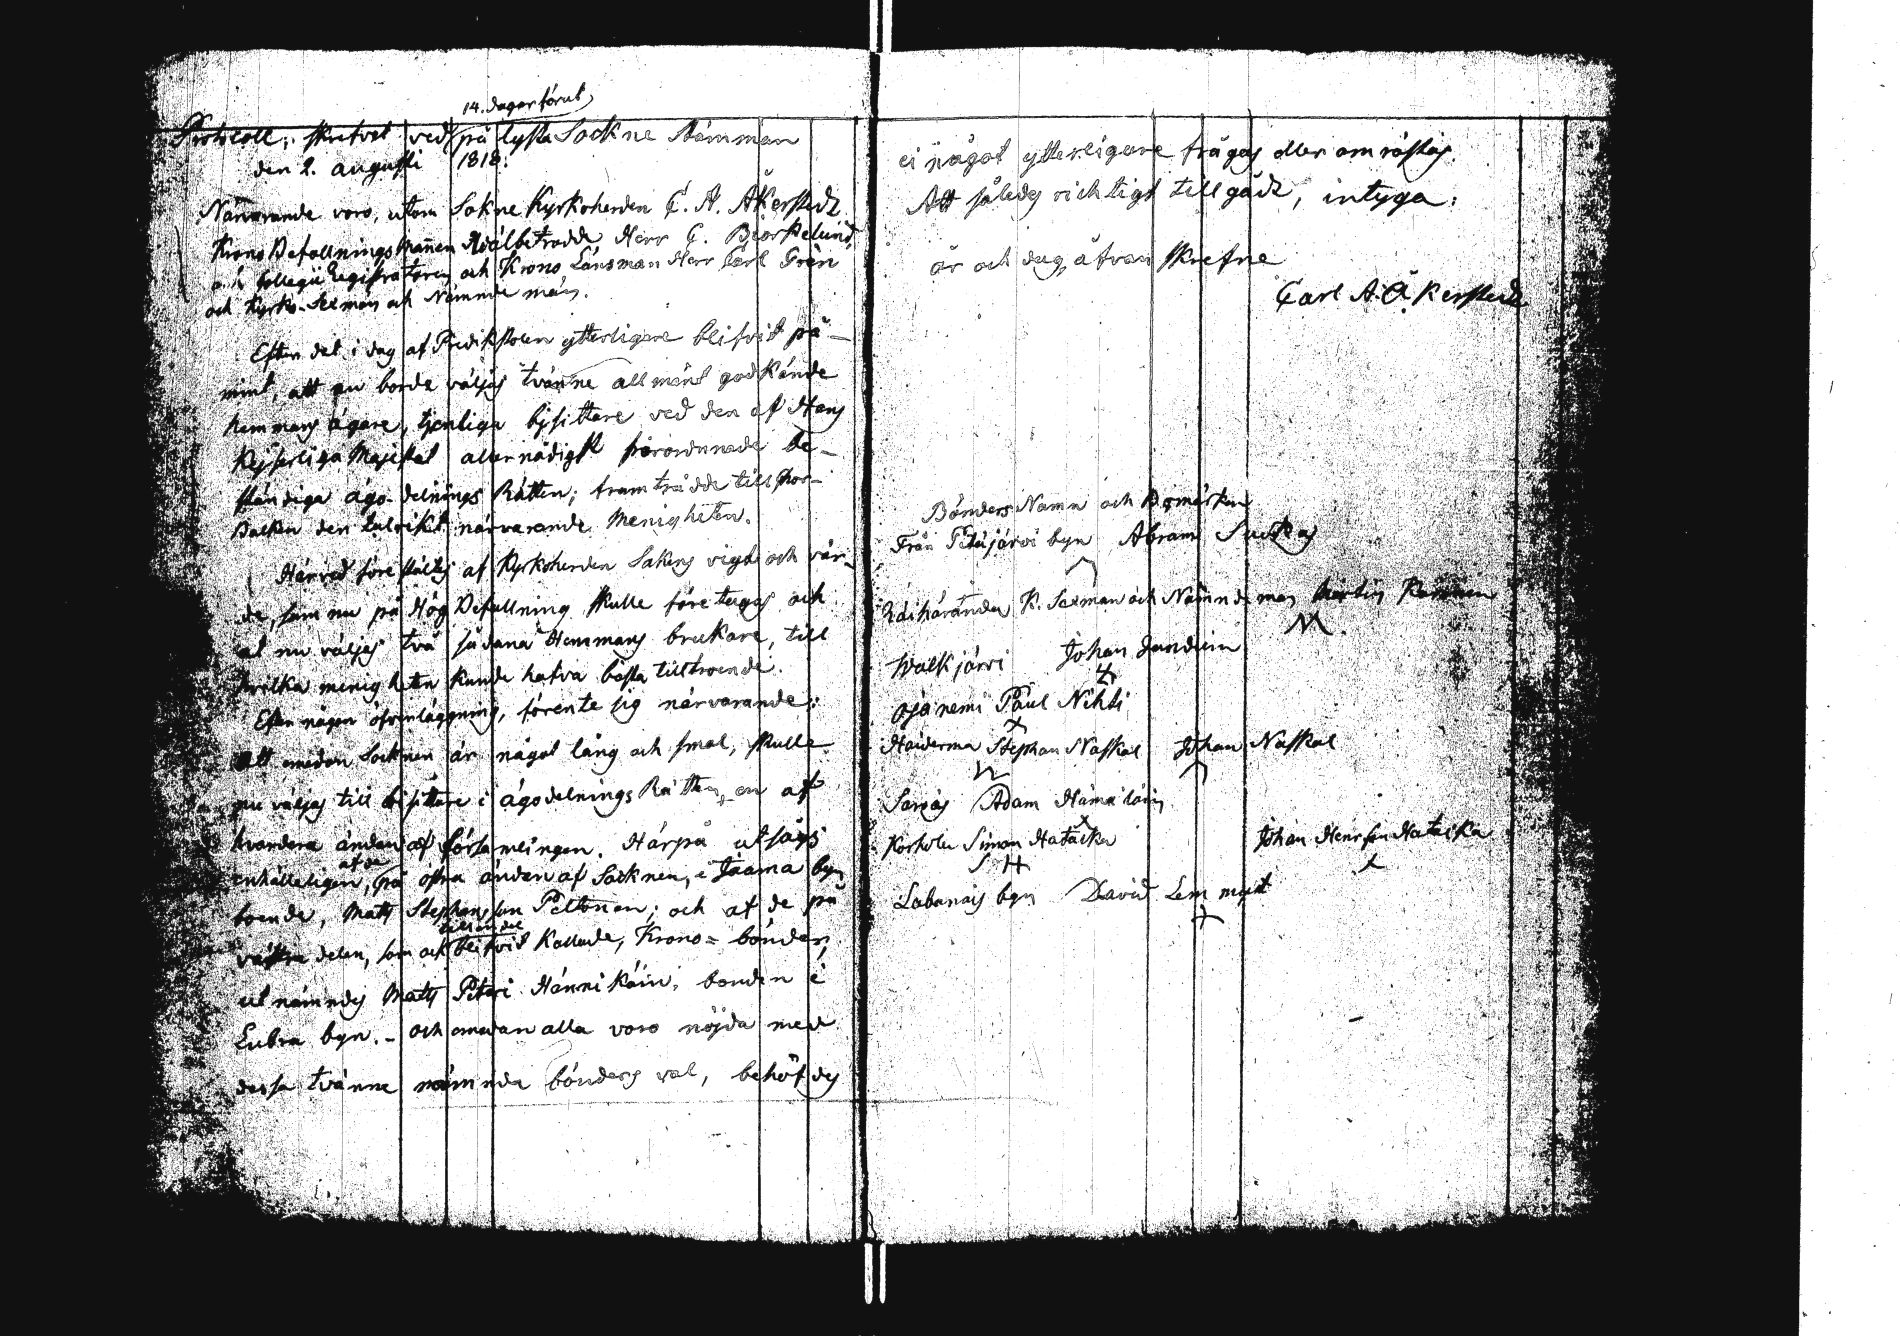 14. dagar förut
Protocoll, skrefvet ved på lyste Sockne Stämman
den 2. augusti 1818:
Närvarande voro, utom Sokne Kyrkoherden C. A. Åkerstedt
Krono Befallnings Mannen Herr C. Björkelund,
Collegii Registratoren och Krono Länsman Herr Carl Grén
och Kyrko-Sexmän och Nämnde män.
Efter det i dag af Predikstolen ytterligare blifvit på-
mint, att nu borde väljas tvänne allmänt godkände
hemmans ägare, tjenliga bisittare ved den af Hans
Kejserliga Majestet allernådigst förordnnade be-
ständiga ägo-delnings Rätten; framträdde till
den talrikt närvarande Menigheten.
Härved föreställtes af Kyrkoherden Sakens vigt och vär-
de, som nu på Hög Befallning skulle företagas och
at nu väljas två sådana Hemmans brukare, till
hvilka menigheten kunde hafva bästa tilltroende.
Efter någon öfverläggning, förente sig närvarande:
att emedan Socknen är något lång och smal, skulle
nu väljas till bisittare i ägodelnings Rätten, en af
hvardera ändan af församlingen. Härpå utsågs
enhälleligen, af de på östra ändan af Socknen, i Jaama byn
boende, Mats Stephansson Peltonen; och af de på
västra delen, som ock blifvit kallade, Krono-bönder,
utnämndes Mats Petari Hännikäin, bonden i
Lubra byn. - och emedan alla voro nöjda med
dessa tvänne nämnda bönders val, behöfdes
ei något ytterligare frågas eller omröstas.
Att således richtigt tillgådt, intyga:
år och dag åfvan skrefne
Carl A. Åkerstedt
Bönders Namn och Bomärken
Från Pitkäjärvi byn Abram Suckas
Räihäranda K. Sexman och Nämndeman
Walkjärvi Johan
Ojanemi Påul Nihti
Stephan Naskal Johan Naskal
Adam Hämäläin
Simon Hatacka Johan Henrson Hatacka
S H
byn David